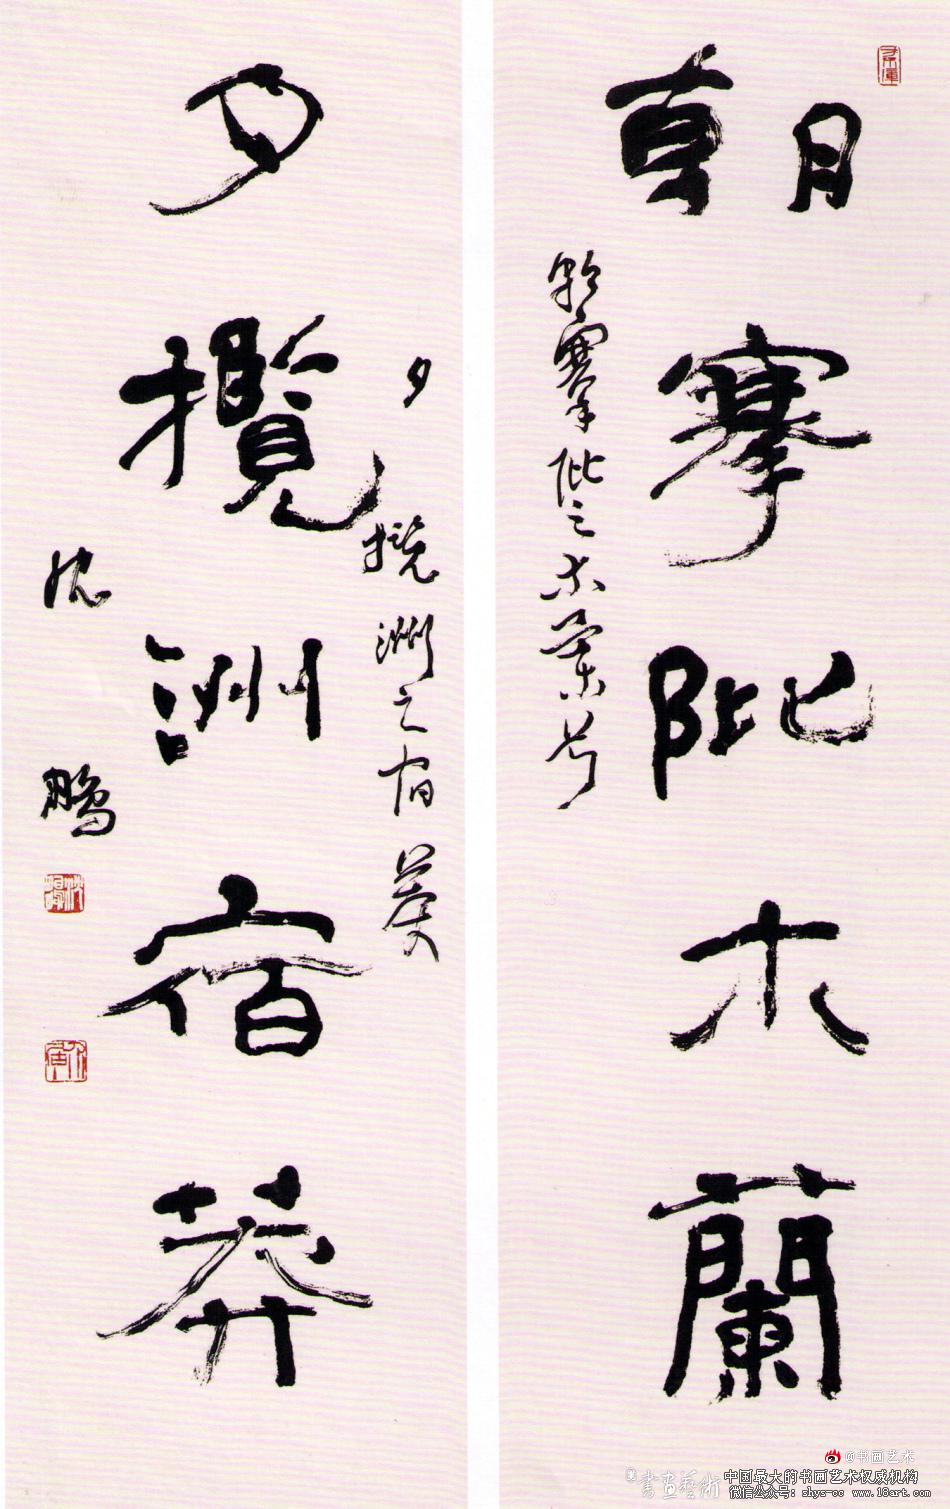 朝搴阰木蘭
朝搴阰之木蘭兮
夕攬洲宿莽
夕攬洲之宿莽
沈鵬
沈鵬
介居
@书画艺术
書畫藝術
中国最大的书画艺术权威机构
微信公众号：shys-cc www.18art.com